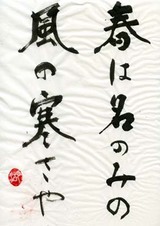 春は名のみの
風の寒さや